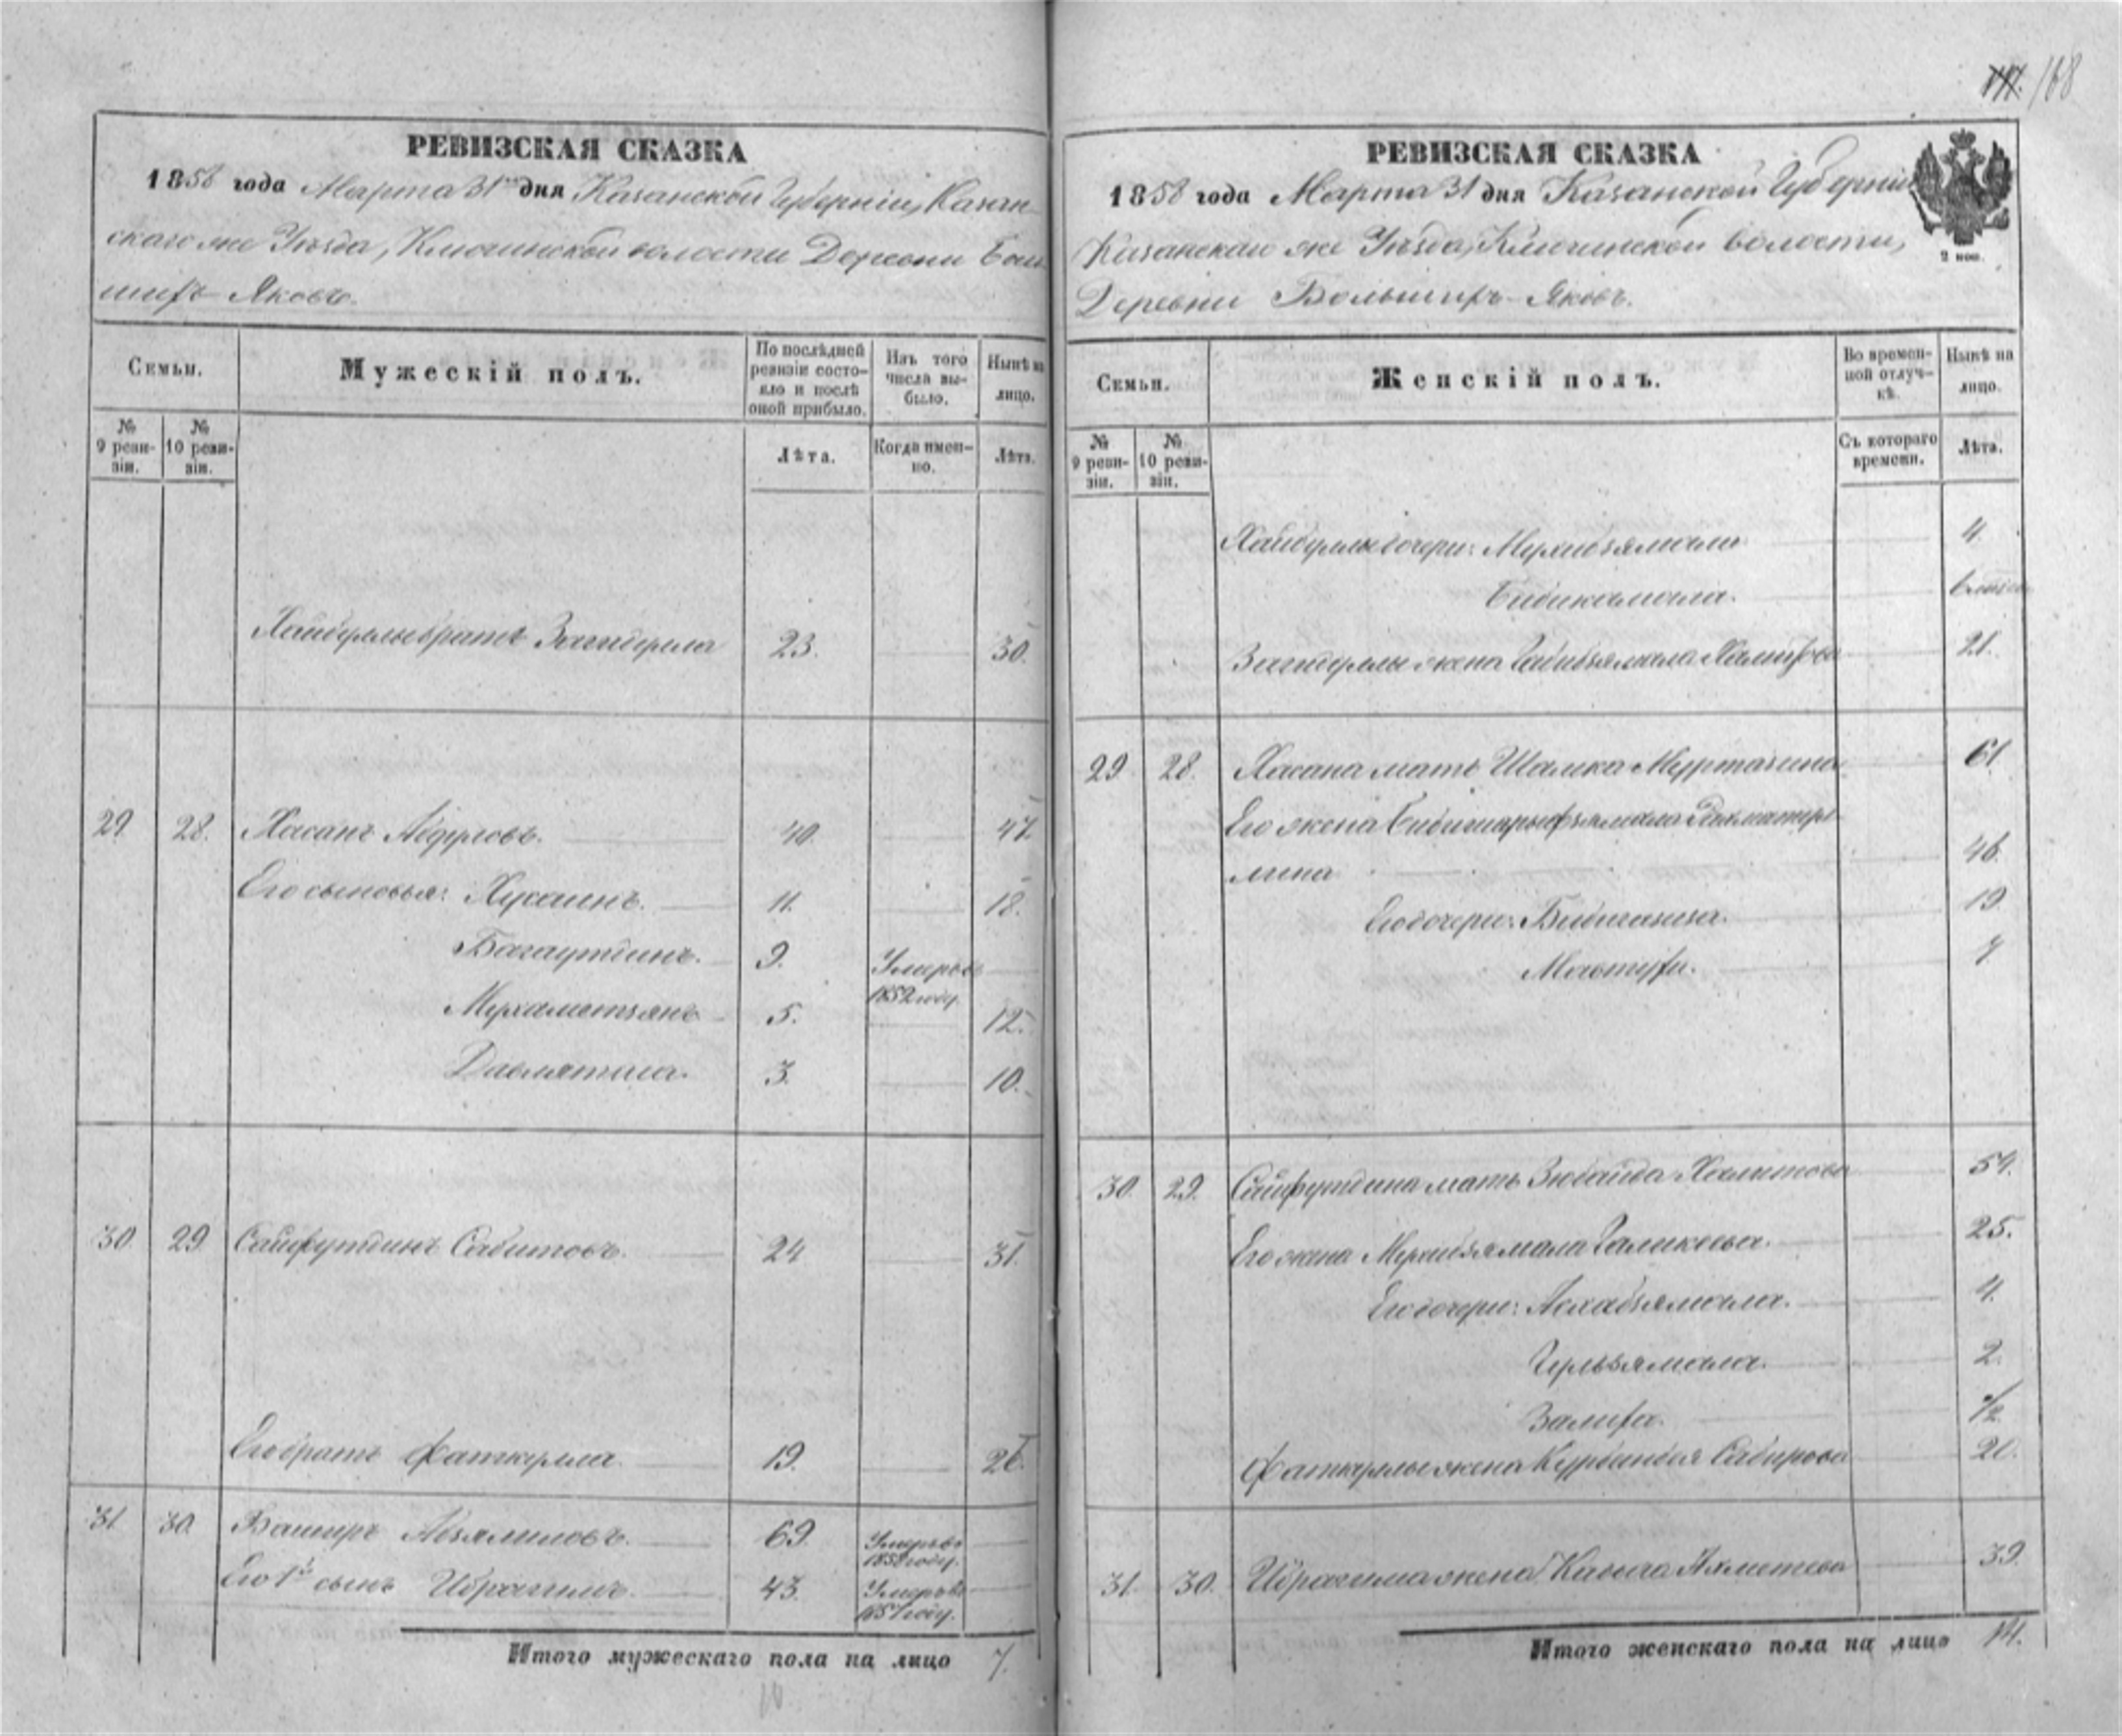 168
РЕВИЗСКАЯ СКАЗКА
1858 года Марта 31 дня Казанской Губерніи, Казан-
скаго же Уѣзда, Ключинской волости Деревни
Яковъ.
Семьи.
№ 9 ревизіи.
№ 10 ревизіи.
Мужескій полъ.
По послѣдней ревизіи состояло и послѣ оной прибыло.
Лѣта.
Изъ того числа выбыло.
Когда именно.
Нынѣ на лицо.
Лѣта.
Хайбуллы братъ 23. 30.
29. 28. Хасанъ Абдуловъ. 40. 47.
Его сыновья: Хусаинъ. 11. 18.
Багаутдинъ. 9. Умеръ въ 1852 году.
Мухаметзянъ 5. 12.
Давлятша. 3. 10.
30. 29 Сайфутдинъ Сабитовъ. 24 31.
Его братъ Фаткулла. 19. 26.
31. 30. Баширъ Абзялиловъ. 69. Умеръ въ году.
Его 1й сынъ Ибрагимъ. 43. Умеръ въ 1857 году.
Итого мужескаго пола на лицо 7.
10
РЕВИЗСКАЯ СКАЗКА
1858 года Марта 31 дня Казанской Губерніи
Казанскаго же Уѣзда, Ключинской волости,
Деревни Яковъ.
2 коп.
Семьи.
№ 9 ревизіи.
№ 10 ревизіи.
Женскій полъ.
Во временной отлучкѣ.
Съ котораго времени.
Нынѣ на лицо.
Лѣта.
Хайбуллы дочери: 4.
Бибикамала.
жена 21.
29. 28. Хасана мать Шамка Муртазина 61.
Его жена
лина 46.
Его дочери: Бибигазиза. 19.
7
30. 29. Сайфутдина мать Зюбайда Халитова 54.
Его жена Галикеева. 25.
Его дочери: Асхабзямала. 4.
Гульзямала. 2.
Залифа. 1/2
Фаткуллы жена Курбанбия Сабирова 20.
31. 30. Ибрагима жена Ахметева 39.
Итого женскаго пола на лицо 14.